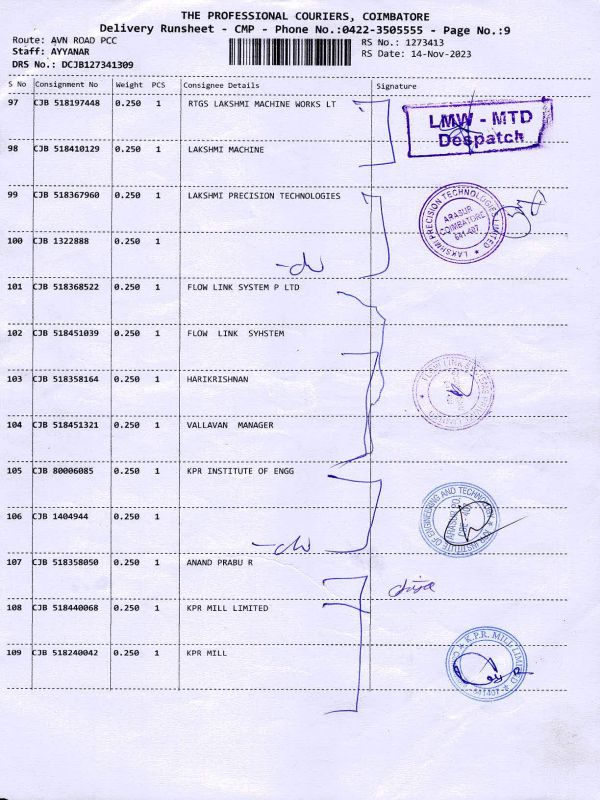 THE PROFESSIONAL COURIERS, COIMBATORE
Delivery Runsheet - CMP - Phone No.:0422-3505555 - Page No.:9
Route: AVN ROAD PCC RS No.: 1273413
Staff: AYYANAR RS Date: 14-Nov-2023
DRS No.: DCJB127341309
S No Consignment No Weight PCS Consignee Details Signature
97 CJB 518197448 0.250 1 RTGS LAKSHMI MACHINE WORKS LT
LMW - MTD
Despatch
98 CJB 518410129 0.250 1 LAKSHMI MACHINE
99 CJB 518367960 0.250 1 LAKSHMI PRECISION TECHNOLOGIES
LAKSHMI PRECISION TECHNOLOGIES LIMITED
ARASUR
COIMBATORE
641-407
100 CJB 1322888 0.250 1
101 CJB 518368522 0.250 1 FLOW LINK SYSTEM P LTD
102 CJB 518451039 0.250 1 FLOW LINK SYHSTEM
103 CJB 518358164 0.250 1 HARIKRISHNAN
104 CJB 518451321 0.250 1 VALLAVAN MANAGER
105 CJB 80006085 0.250 1 KPR INSTITUTE OF ENGG
KPR INSTITUTE OF ENGINEERING AND TECHNOLOGY
106 CJB 1404944 0.250 1
107 CJB 518358050 0.250 1 ANAND PRABU R
108 CJB 518440068 0.250 1 KPR MILL LIMITED
109 CJB 518240042 0.250 1 KPR MILL
K.P.R. MILL LIMITED
641407